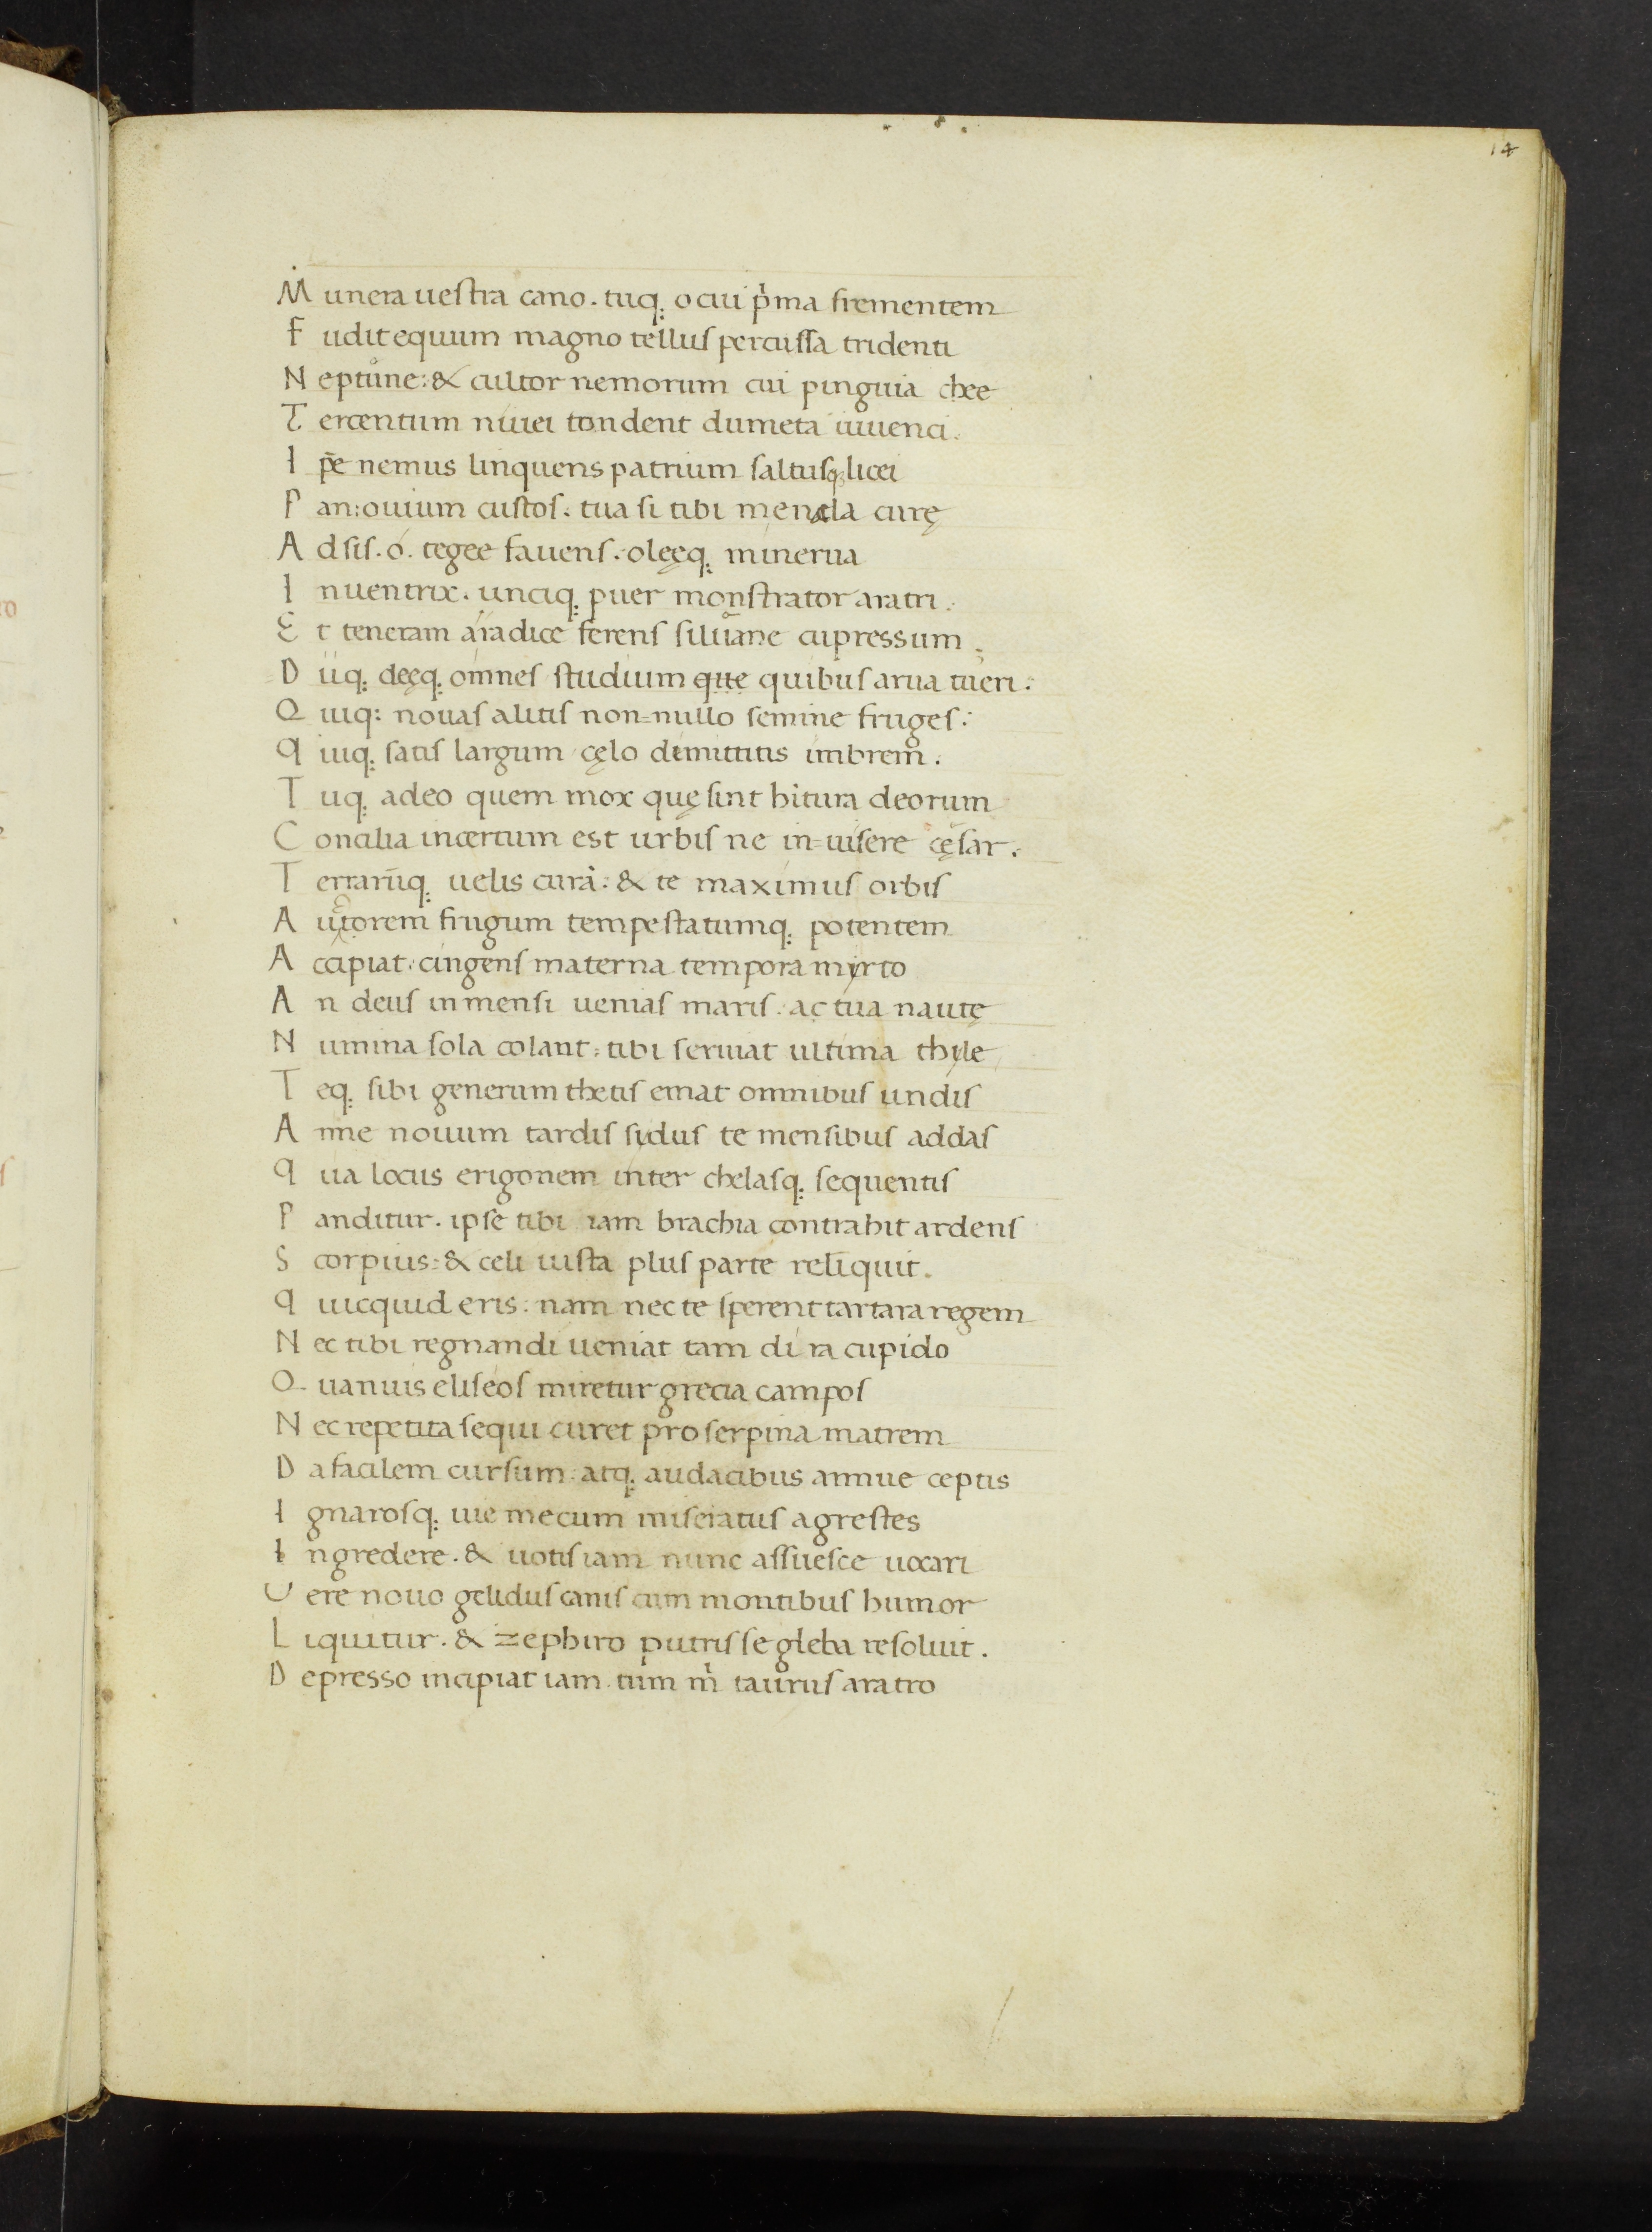 14
M unera uestra cano. tuq; o cui p̀ma frementem
F udit equum magno tellus percussa tridenti
N eptune: & cultor nemorum cui pinguia chee
T ercentum niuei tondent dumeta iuuenci.
I pse nemus linquens patrium saltusq; licei
P an: ouium custos. tua si tibi menala curę
A dsis. o. tegee fauens. oleęq; minerua
I nuentrix. unciq; puer monstrator aratri.
E t teneram a radice ferens siluane cupressum.
D iiq; deęq; omnes studium que quibus arua tueri.
Q uiq; nouas alitis non-nullo semine fruges.
q uiq; satis largum cęlo dimittitis imbrem.
T uq; adeo quem mox quę sint hitura deorum
C oncilia incertum est urbis ne in-uisere cęsar.
T errarūq; uelis curā: & te maximus orbis
A utorem frugum tempestatumq; potentem
A ccipiat. cingens materna tempora myrto
A n deus inmensi uenias maris. ac tua nautę
N umina sola colant: tibi seruiat ultima thyle
T eq; sibi generum thetis emat omnibus undis
A nne nouum tardis sydus te mensibus addas
q ua locus erigonem inter chelasq; sequentis
P anditur. ipse tibi iam brachia contrahit ardens
S corpius: & celi iusta plus parte reliquit.
q uicquid eris: nam nec te sperent tartara regem
N ec tibi regnandi ueniat tam dira cupido
Q uanuis eliseos miretur grecia campos
N ec repetita sequi curet proserpina matrem
D a facilem cursum: atq; audacibus annue ceptis
I gnarosq; uie mecum miseratus agrestes
I ngredere. & uotis iam nunc assuesce uocari
U ere nouo gelidus canis cum montibus humor
L iquitur. & zephiro putris se gleba resoluit.
D epresso incipiat iam tum m̀ taurus aratro